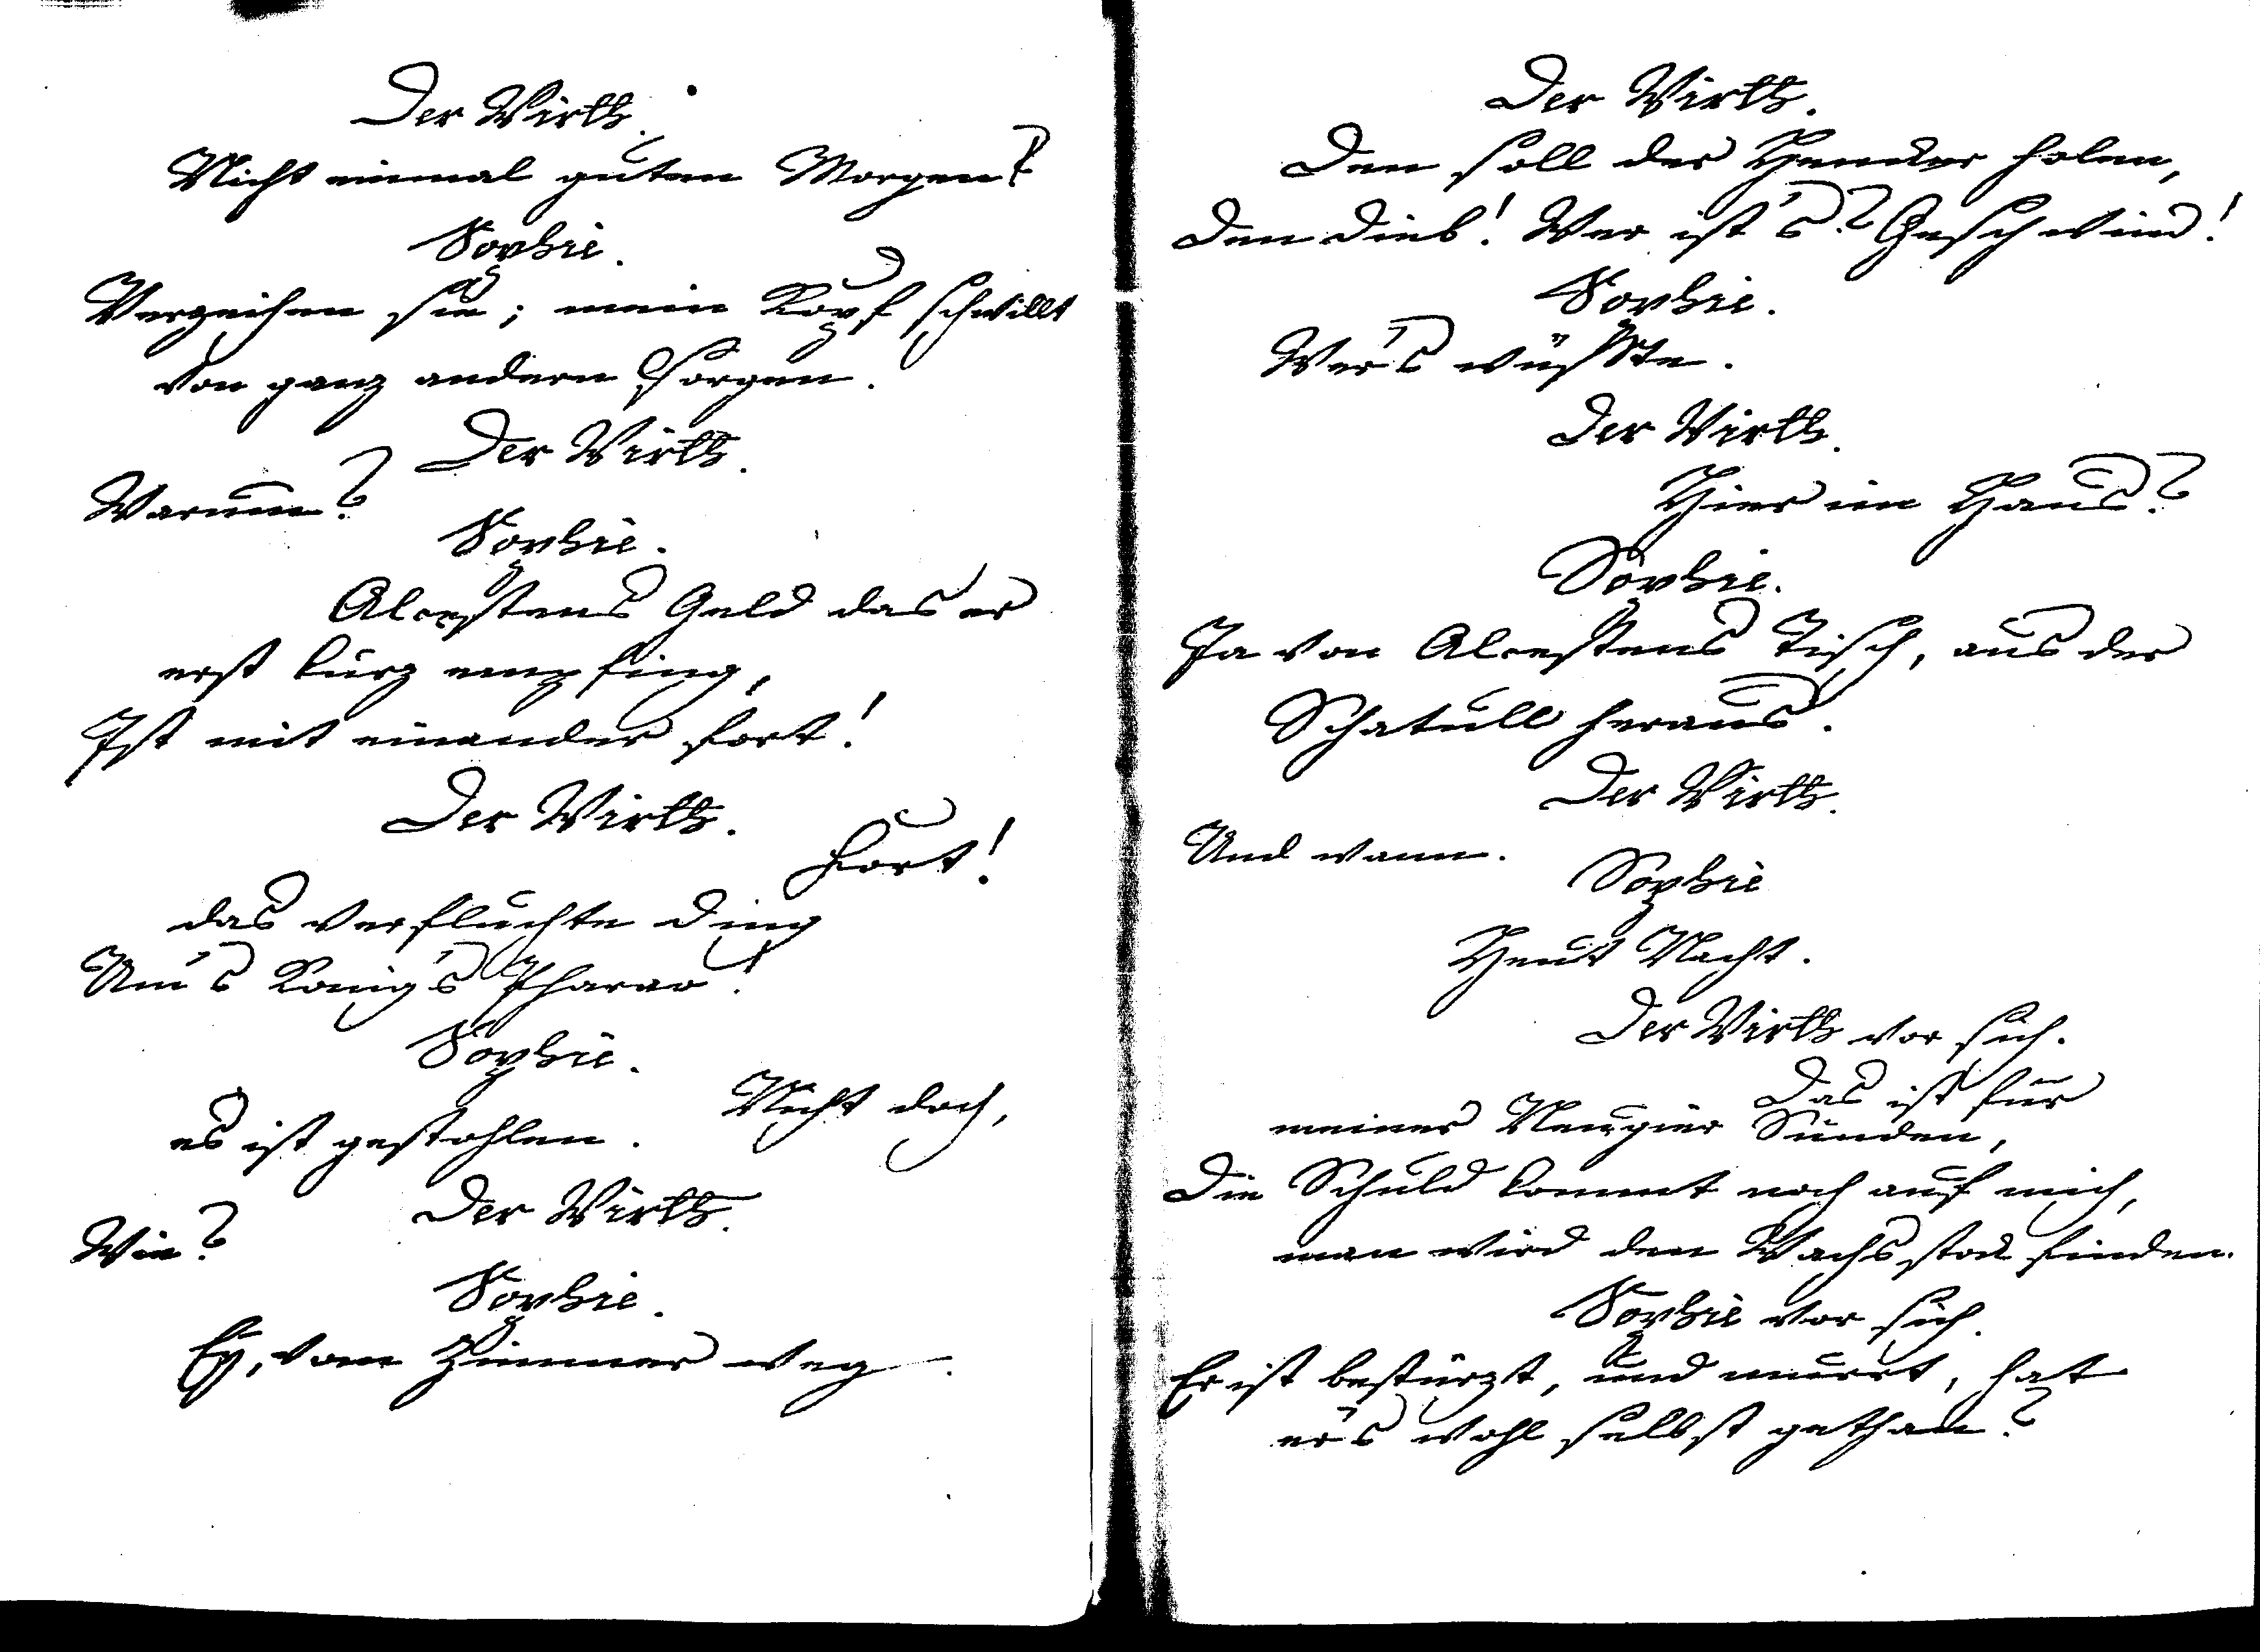 Der Wirth.
Nicht einmal guten Morgen?
Sophie.
Verzeihen sie; mein Kopf schwillt
von ganz andern Sorgen.
Der Wirth.
Warum?
Sophie.
Alcestens Geld das er
erst kurz empfing,
Ist mit einander fort!
Der Wirth.
Fort!
das verfluchte Ding
Um's König's Pharao!
Sophie.
Nicht doch,
es ist gestohlen.
Der Wirth.
Wie?
Sophie.
Ey, vom Zimmer weg.
Der Wirth.
Den soll der Hencker holen,
Den Dieb! Wer ist's? Geschwind!
Sophie.
Wer's wüsste.
Der Wirth.
Hier im Haus?
Sophie.
Ja von Alcestens Tisch, aus der
Schatull heraus.
Der Wirth.
Und wann.
Sophie
Heut Nacht.
Der Wirth vor sich.
Das ist für
meiner Neugier Sünden,
Die Schuld kommt noch auf mich,
man wird den Wachsstock finden.
Sophie vor sich.
Er ist bestürzt, und murrt, hat
er's wohl selbst gethan?